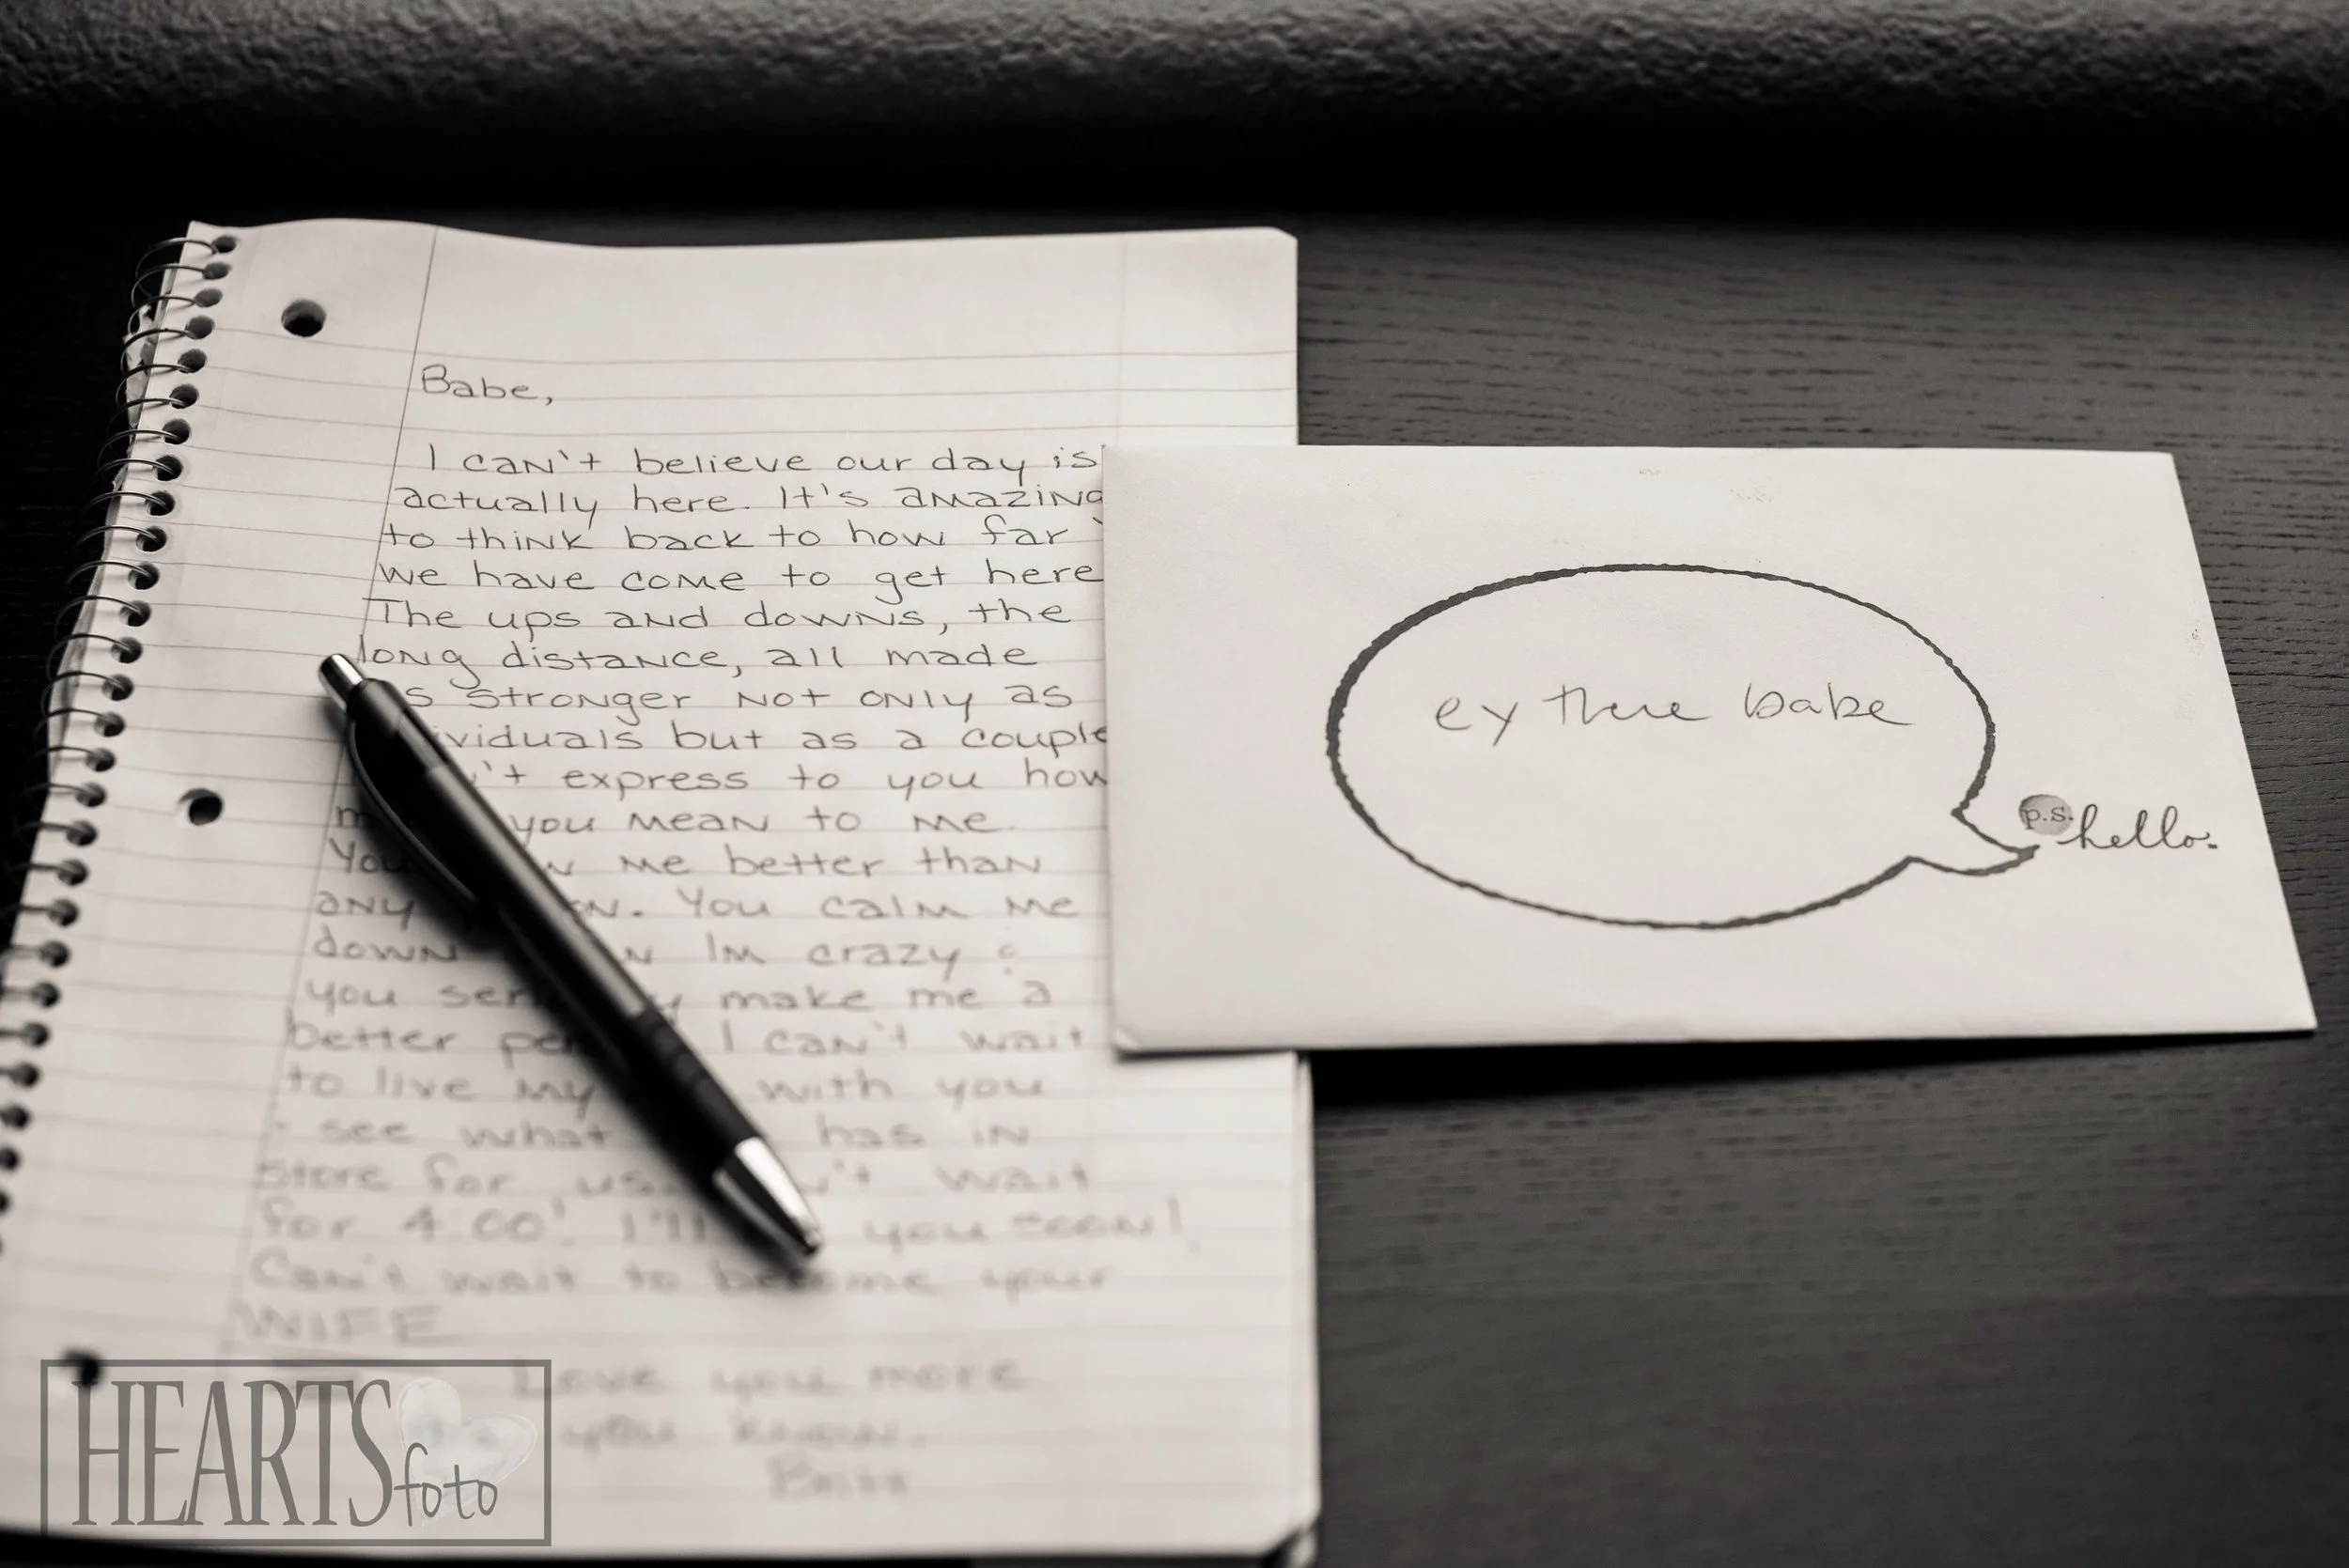 Babe,
I can't believe our day is
actually here. It's amazing
to think back to how far
we have come to get here
The ups and downs, the
long distance, all made
s stronger not only as
ividuals but as a couple
't express to you how
m you mean to me.
You w me better than
any on. You calm me
down n Im crazy &
you ser y make me a
better pe I can't wait
to live my with you
& see what has in
store for us. 't wait
for 4:00! I'll you soon!
Can't wait to become your
WIFE
Love you more
you know.
ey there babe
p.s. hello.
HEARTS
foto